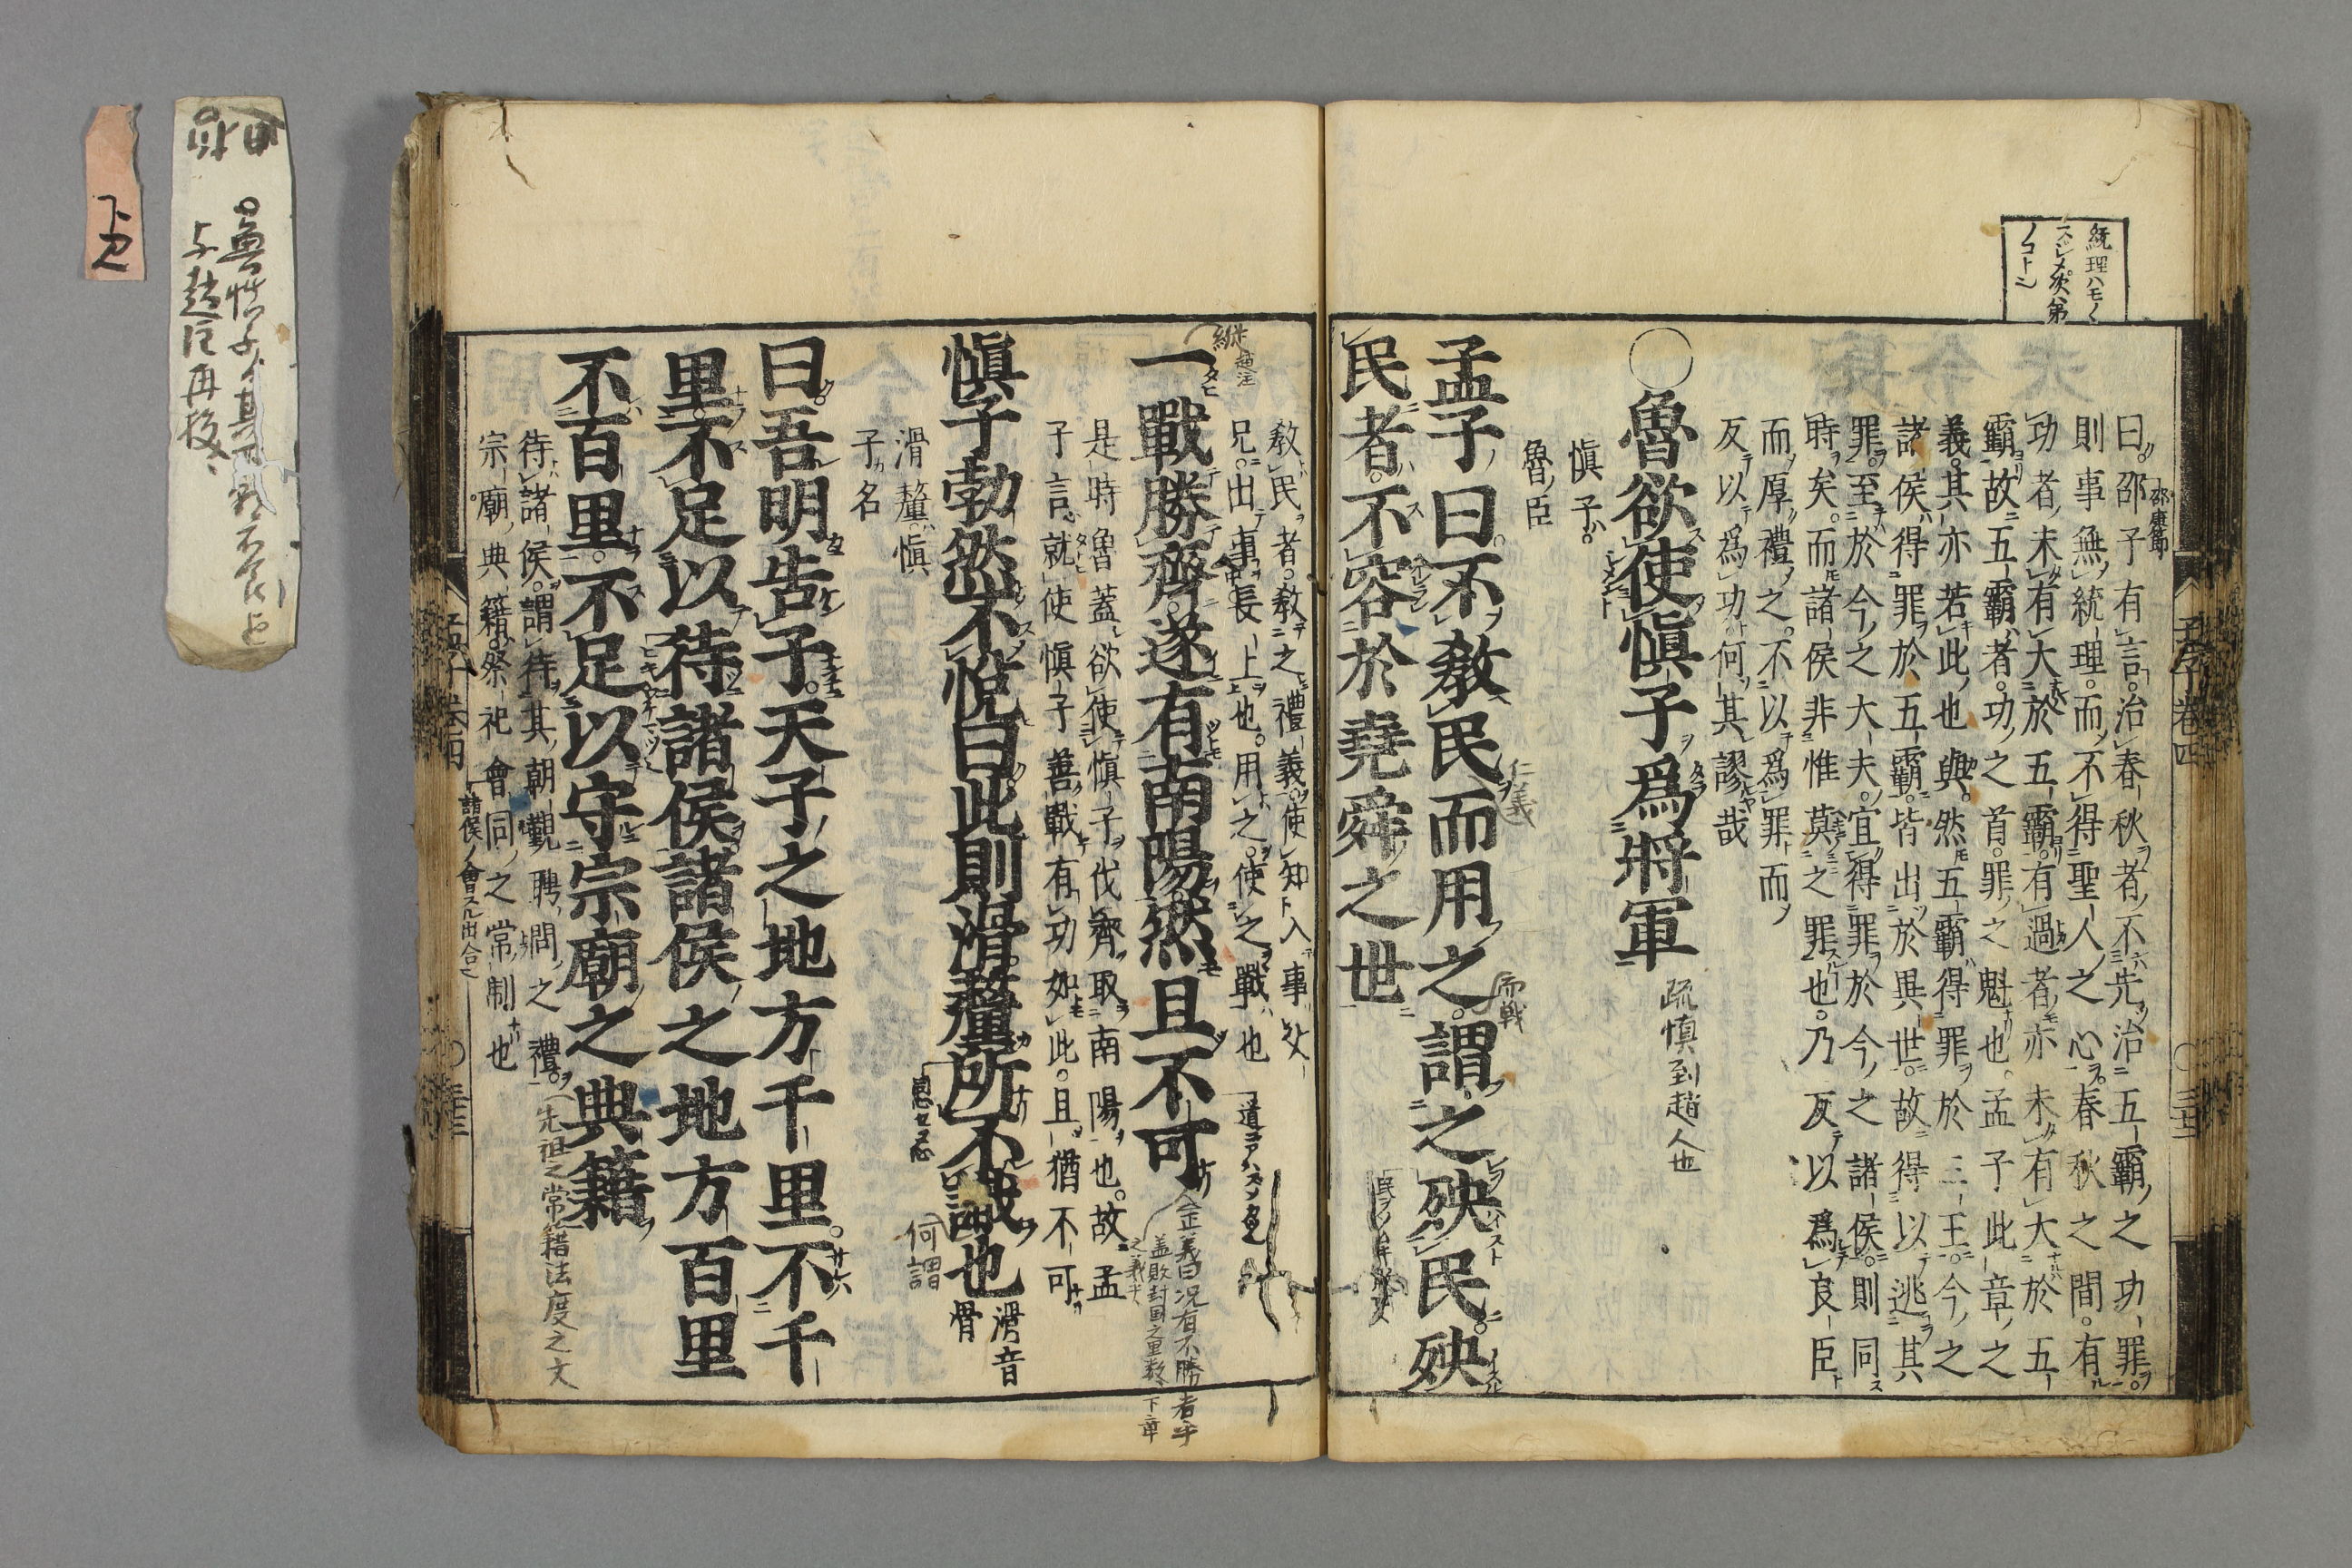 統理ハモノく
スシメ次第
ノコト
邵康節
曰邵子有言治春秋者不先治五霸之功罪
則事無統理而不得聖人之心春秋之間有
功者未有大於五霸有過者亦未有大於五
霸故五霸者功之首罪之魁也孟子此章之
義其亦若此也與然五霸得罪於三王今之
諸侯得罪於五霸皆出於異世故得以逃其
罪至於今之大夫宜得罪於今之諸侯則同
時矣而諸侯非惟莫之罪也乃反以爲良臣
而厚禮之不以爲罪而
反以爲功何其謬哉
○魯欲使愼子爲將軍
疏慎到趙人也
愼子
魯臣
孟子曰不敎民而用之謂之殃民殃
仁義
而戦
民者不容於堯舜之世
敎民者敎之禮義使知入事父
兄出事長上也用之使之戰也
一戰勝齊遂有南陽然且不可
金義曰况有不勝者乎
是時魯蓋欲使愼子伐齊取南陽也故孟
子言就使愼子善戰有功如此且猶不可
愼子勃然不悅曰此則滑釐所不識也
滑音
骨
何謂
滑釐愼
子名
曰吾明告子天子之地方千里不千
里不足以待諸侯諸侯之地方百里
不百里不足以守宗廟之典籍
待諸侯謂待其朝覲聘問之禮
先祖之常籍法度之文
宗廟典籍祭祀會同之常制也
諸侯ノ會スル出合
孟子卷四
三十三